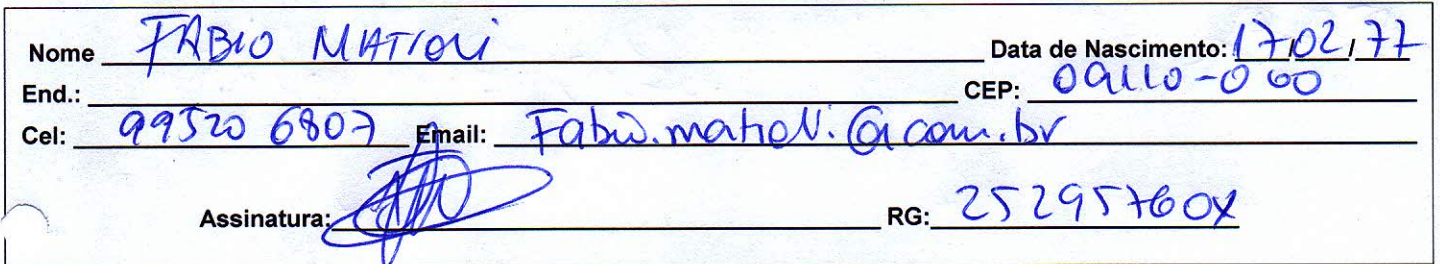 Nome FABIO MATIOLI Data de Nascimento: 17/02/77
End.: CEP: 09110-060
Cel: 99520 6807 Email: Fabio.matioli.@com.br
Assinatura: RG: 25295760X